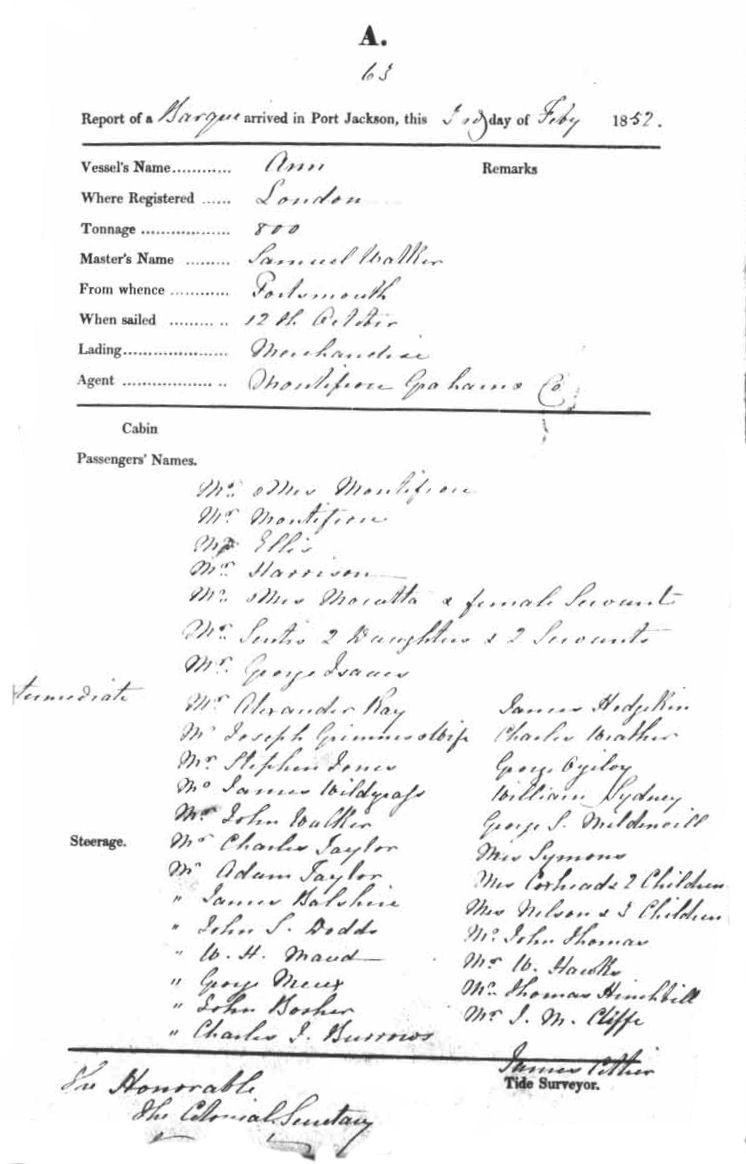 A.
63
Report of a Barque arrived in Port Jackson, this 3rd day of Feby 1852.
Vessel's Name............ Ann Remarks
Where Registered ...... London
Tonnage .................. 800
Master's Name ......... Samuel Walker
From whence ............ Portsmouth
When sailed ......... .. 12th October
Lading..................... Merchandise
Agent ................. .. Montifiore Graham & Co
Cabin
Passengers' Names.
Mr & Mrs Montifiore
Mr Montifiore
Mr Ellis
Mr Harrison
Mr & Mrs Mocatta & female Servant
Mr Sentis 2 Daughters & 2 Servants
Mr George Isaacs
termediate Mr Alexander Ray James Hodgkin
Mr Joseph Grimmer & Wife Charles Mather
Mr Stephen Jones George Ogilvy
Mr James Wildgrass William Sydney
Mr John Walker George S.
Steerage. Mr Charles Taylor Mrs Symons
Mr Adam Taylor Mrs Corhead & 2 Children
" James Balshine Mrs Nelson & 3 Children
" John S. Dodds Mr John Thomas
" W. H. Maud Mr W. Hawks
" George Meux Mr Thomas Hinchbill
" John Bosher Mr J. M. Cliffe
" Charles J. Burrows
James
Tide Surveyor.
The Honorable
The Colonial Secretary